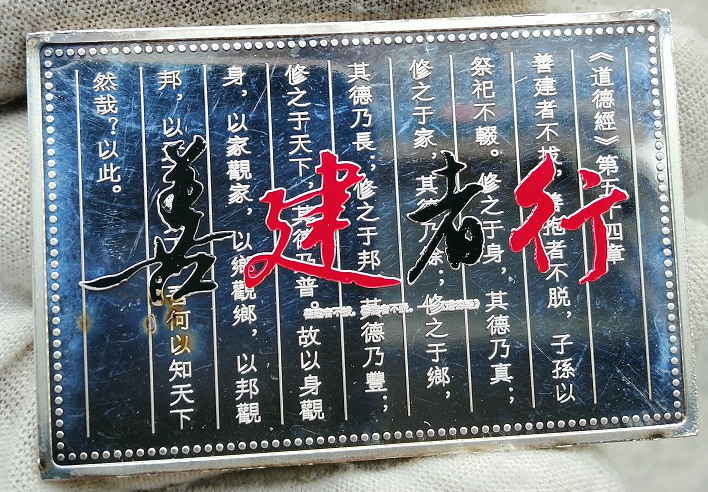 《道德經》第五十四章
善建者不拔，善抱者不脱，子孫以
祭祀不輟。修之于身，其德乃真；
修之于家，其德乃餘；修之于鄉，
其德乃長；修之于邦，其德乃豐；
修之于天下，其德乃普。故以身觀
身，以家觀家，以鄉觀鄉，以邦觀
邦，以吾何以知天下
然哉？以此。
善建者行